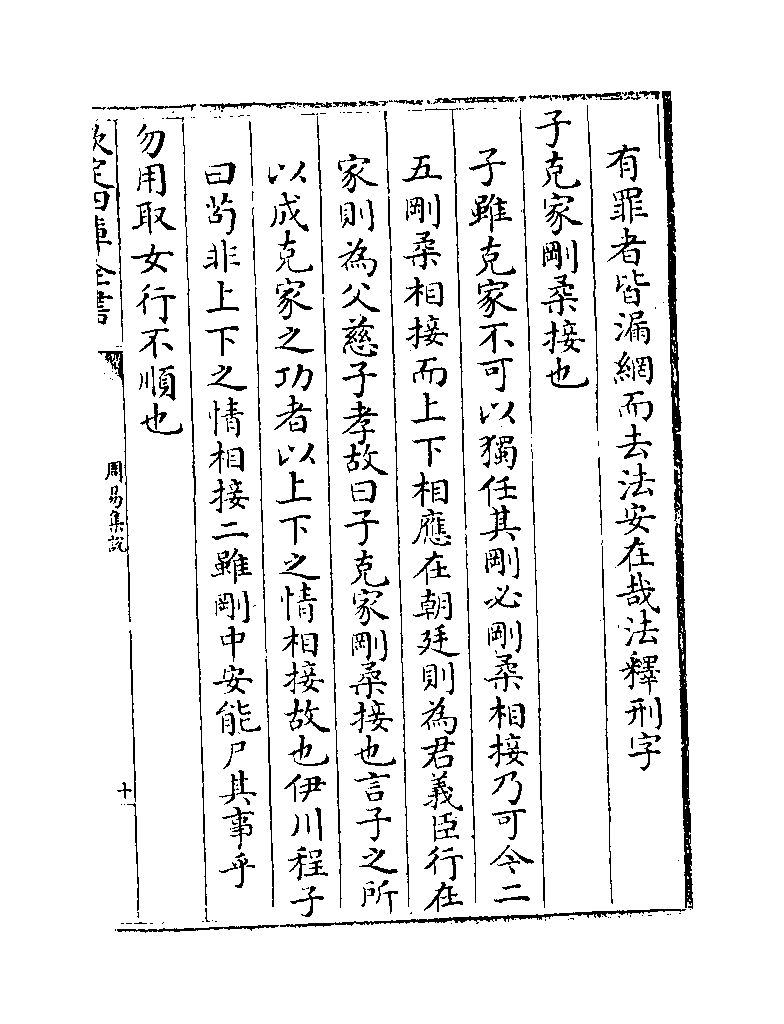 有罪者皆漏網而去法安在哉法釋刑字
子克家剛柔接也
子雖克家不可以獨任其剛必剛柔相接乃可今二
五剛柔相接而上下相應在朝廷則為君義臣行在
家則為父慈子孝故曰子克家剛柔接也言子之所
以成克家之功者以上下之情相接故也伊川程子
曰茍非上下之情相接二雖剛中安能尸其事乎
勿用取女行不順也
欽定四庫全書
周易集說
十